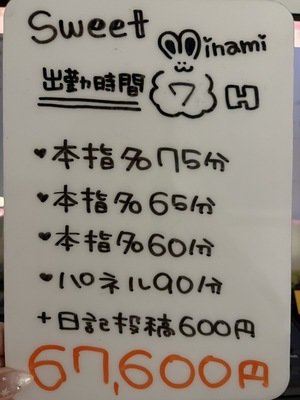 Sweet
Minami
出勤時間 7H
♥本指名75分
♥本指名65分
♥本指名60分
♥パネル90分
+日記投稿600円
67,600円